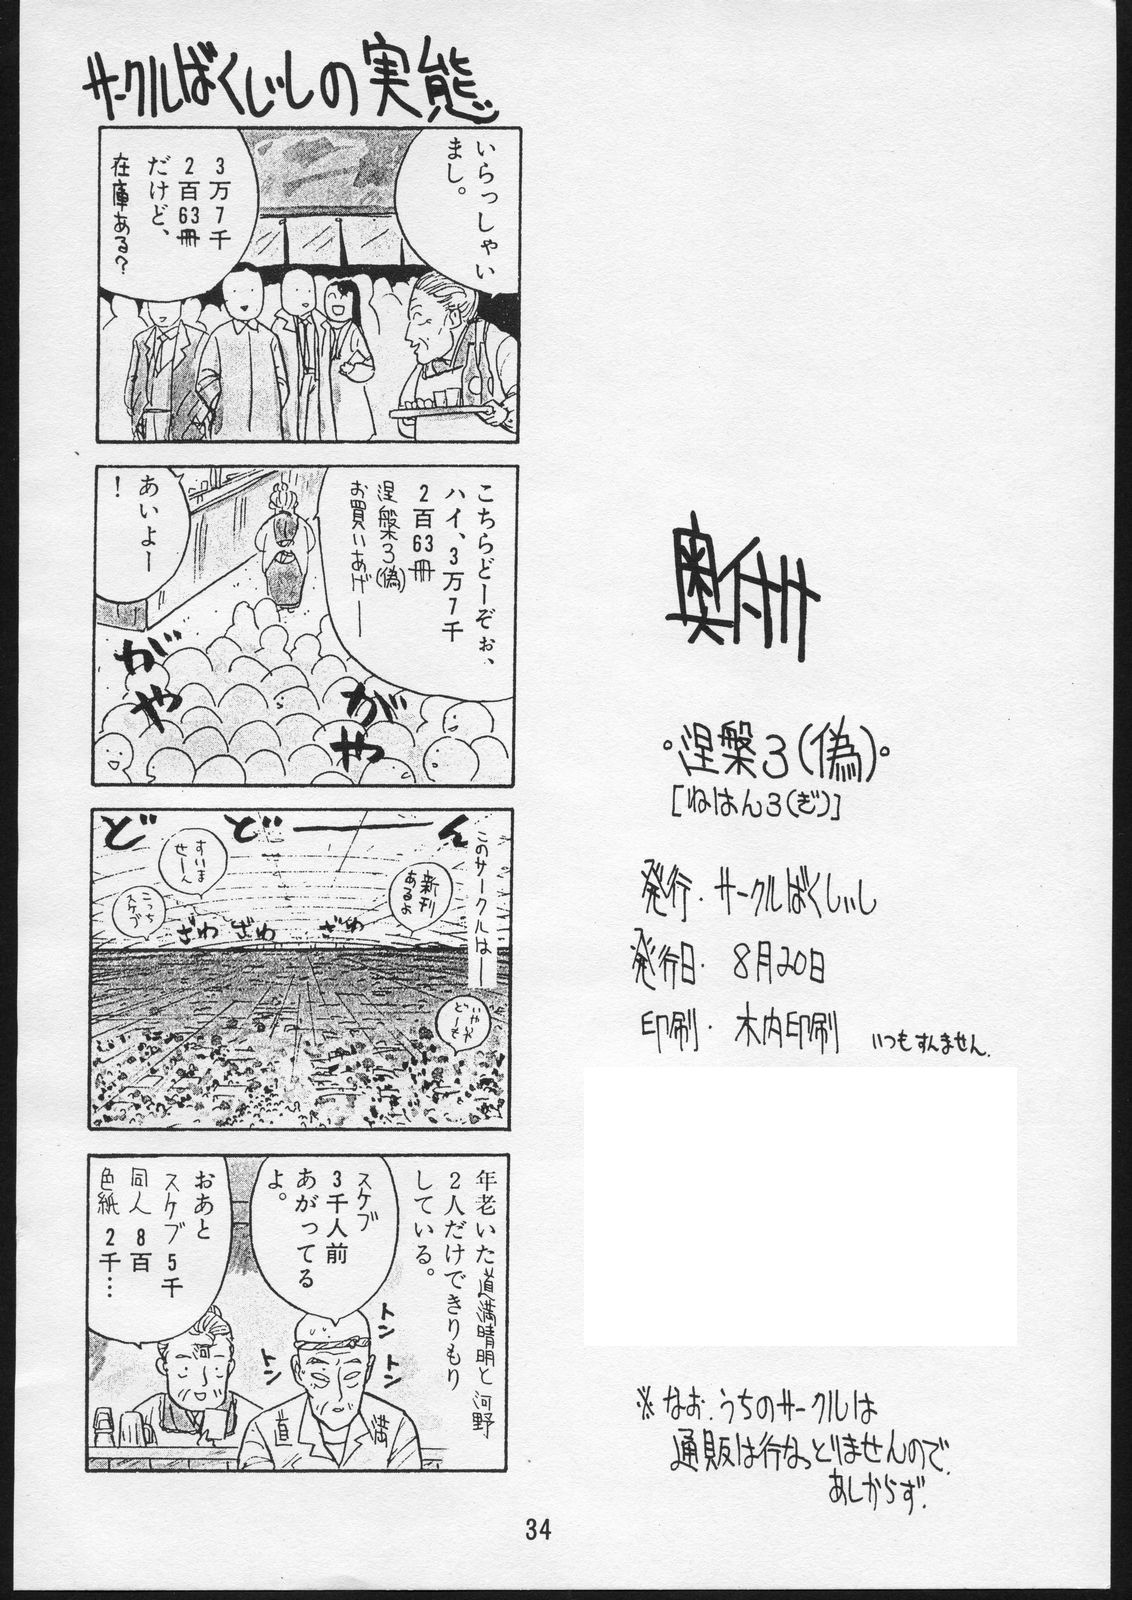 サークルばくしぃしの実態
いらっしゃい
まし。
3万7千
2百63冊
だけど、
在庫ある?
こちらどーぞぉ、
ハイ、3万7千
2百63冊
涅槃3(偽)
お買いあげー
あいよー
!
がや
がや
ど
ど
ー
ん
このサークルは―
新刊
あるよ
すいま
せーん
こっち
スケブ
ざわ
ざわ
ざわ
いやや
どーも
年老いた道満晴明と河野
2人だけできりもり
している。
スケブ
3千人前
あがってる
よ。
おあと
スケブ5千
同人8百
色紙2千…
トン
トン
トン
トン
河
道満
奥付
。涅槃3(偽)。
[ねはん3(ぎ)]
発行.サークルばくしぃし
発行日.8月20日
印刷.木内印刷 いつもすんません.
※なお.うちのサークルは
通販は行なっとりませんので.
あしからず.
34